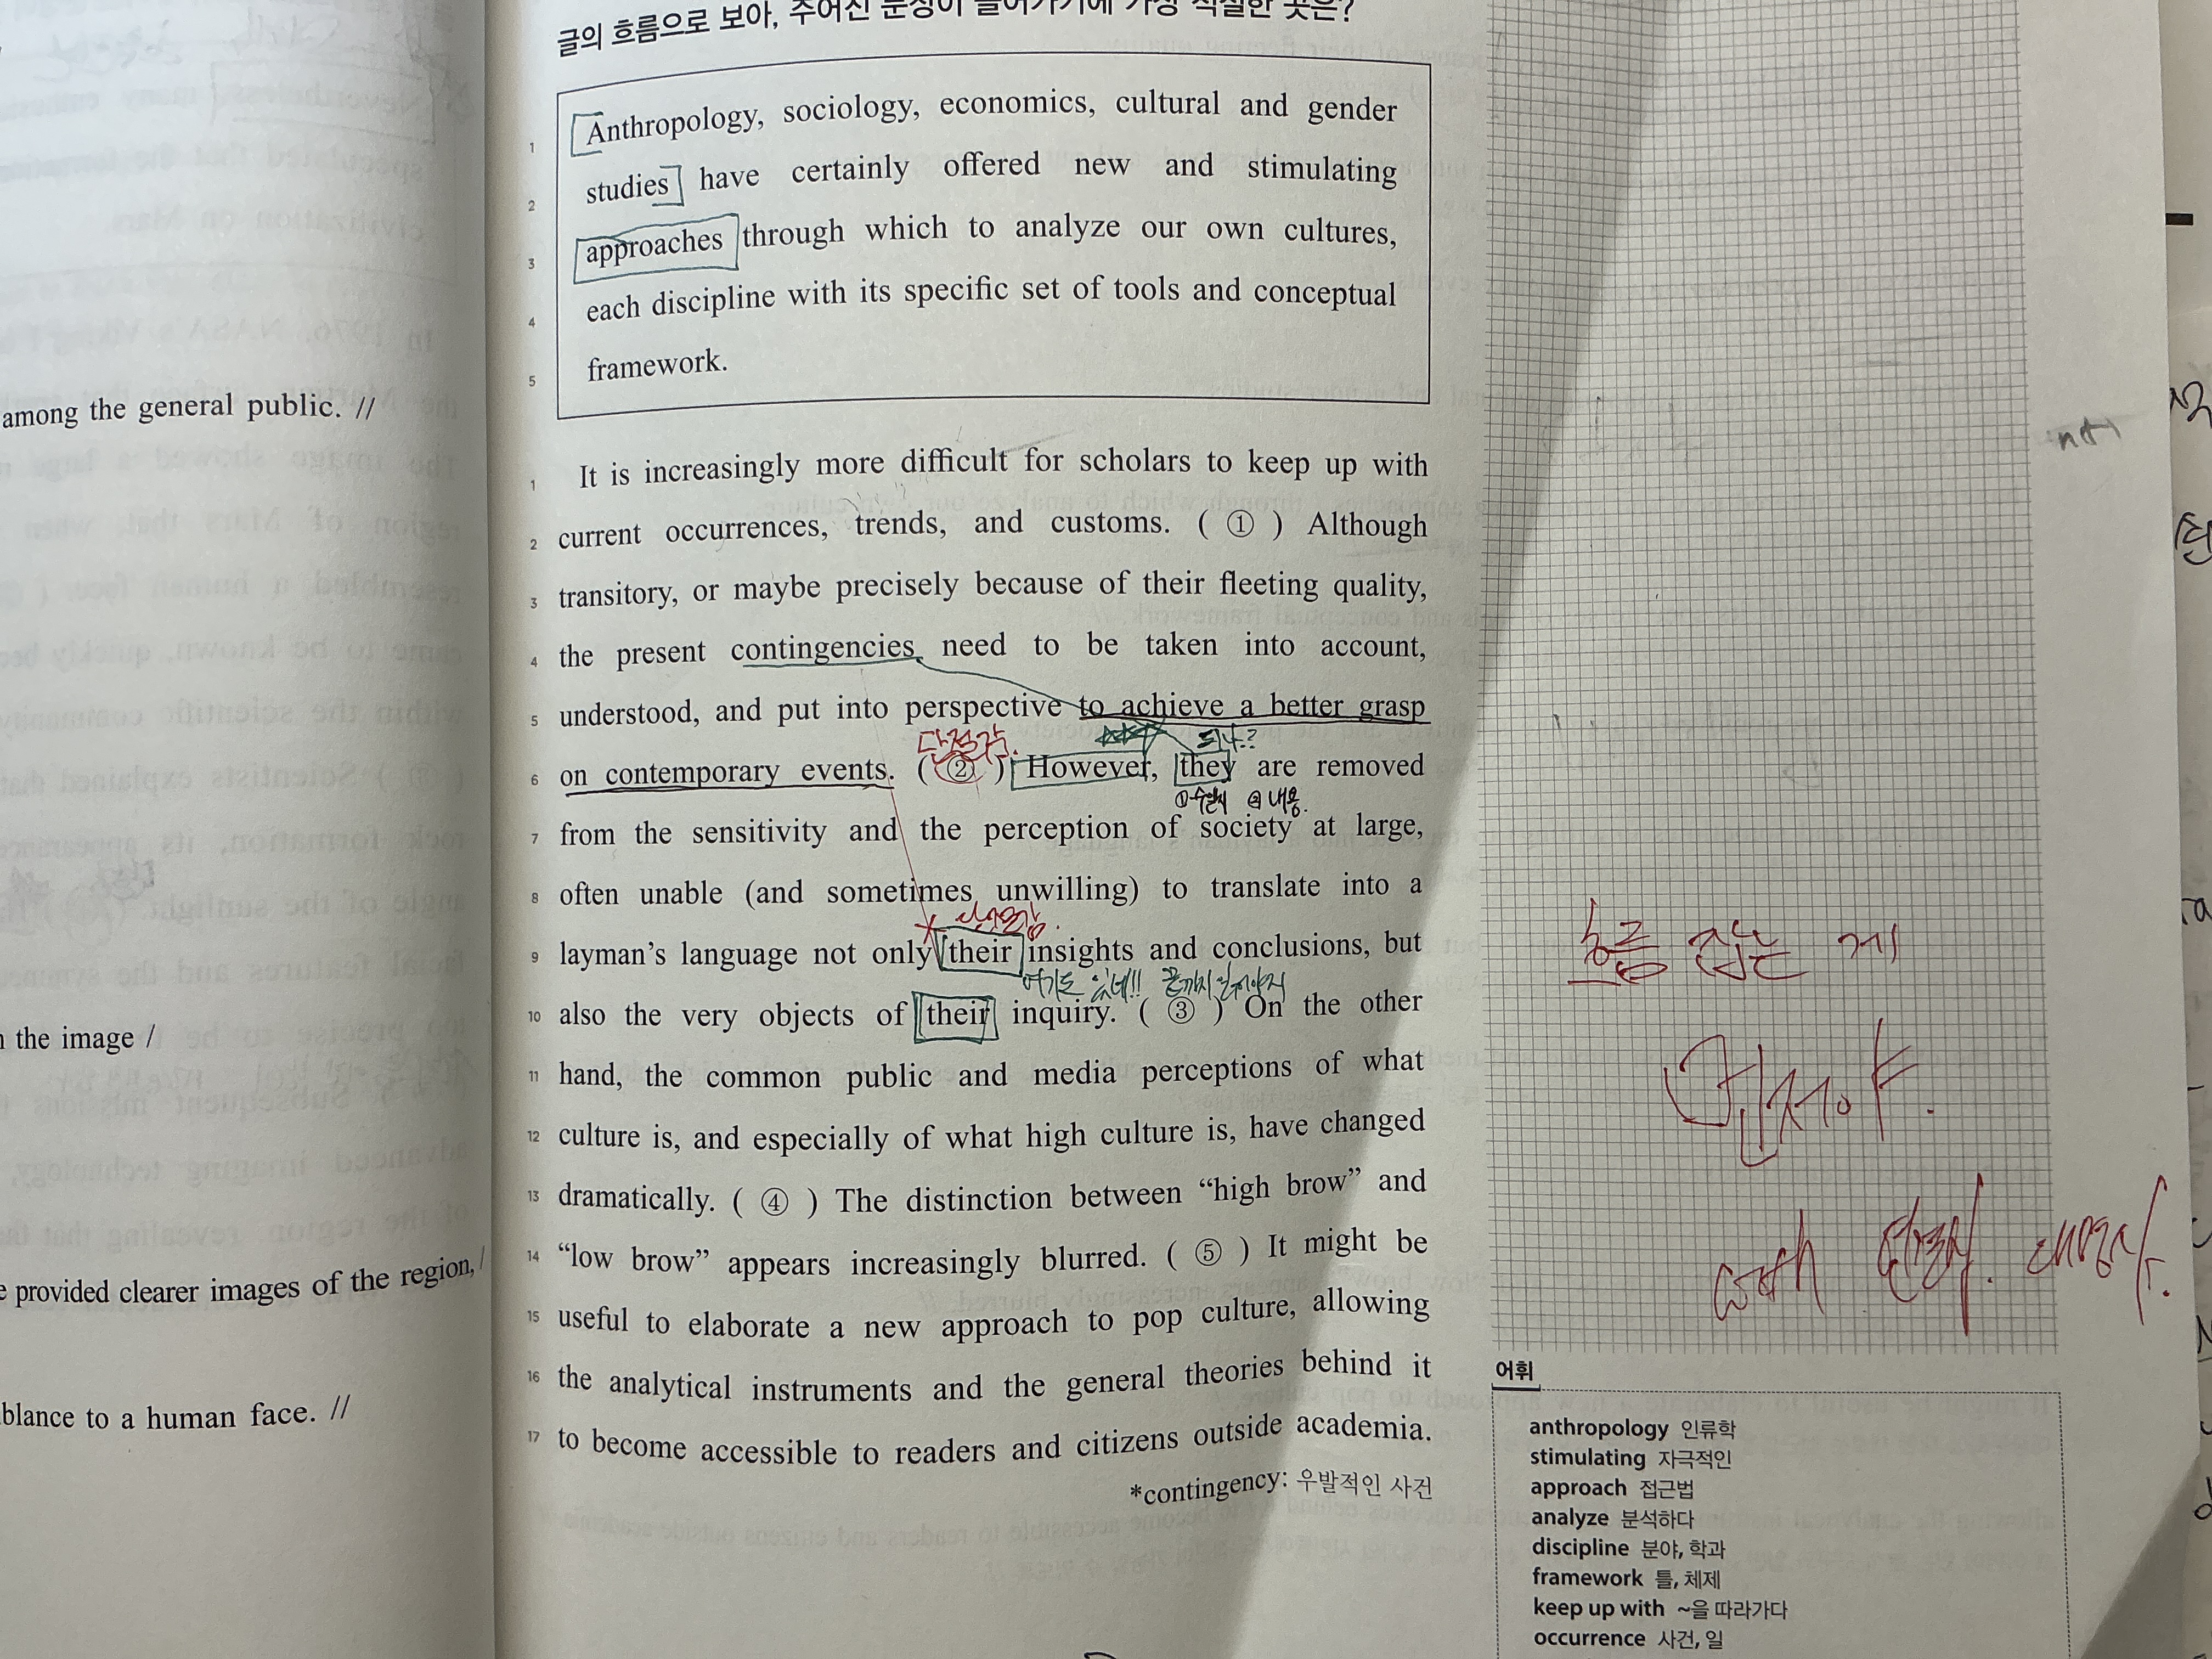 글의 흐름으로 보아, 주어진 문장이 들어가기에 가장 적절한 곳은?
1 Anthropology, sociology, economics, cultural and gender
2 studies have certainly offered new and stimulating
3 approaches through which to analyze our own cultures,
4 each discipline with its specific set of tools and conceptual
5 framework.
among the general public. //
1 It is increasingly more difficult for scholars to keep up with
2 current occurrences, trends, and customs. ( ① ) Although
3 transitory, or maybe precisely because of their fleeting quality,
4 the present contingencies need to be taken into account,
5 understood, and put into perspective to achieve a better grasp
되나?
6 on contemporary events. ( ② ) However, they are removed
내용.
7 from the sensitivity and the perception of society at large,
8 often unable (and sometimes unwilling) to translate into a
9 layman's language not only their insights and conclusions, but
여기도 있네!! 끝까지 읽어야지
10 also the very objects of their inquiry. ( ③ ) On the other
the image /
11 hand, the common public and media perceptions of what
12 culture is, and especially of what high culture is, have changed
13 dramatically. ( ④ ) The distinction between “high brow” and
14 “low brow” appears increasingly blurred. ( ⑤ ) It might be
provided clearer images of the region, /
15 useful to elaborate a new approach to pop culture, allowing
16 the analytical instruments and the general theories behind it
17 to become accessible to readers and citizens outside academia.
blance to a human face. //
*contingency: 우발적인 사건
흐름 잡는 게
어휘
anthropology 인류학
stimulating 자극적인
approach 접근법
analyze 분석하다
discipline 분야, 학과
framework 틀, 체제
keep up with ~을 따라가다
occurrence 사건, 일